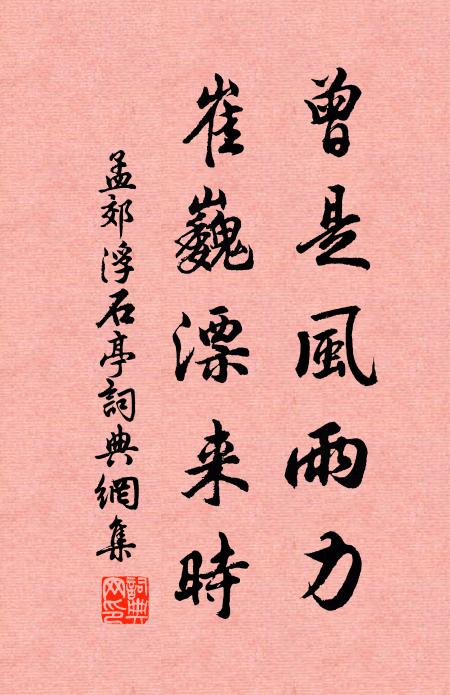 曾是風雨力
崔巍漂来時
孟郊浮石亭詞典網集
詞典网印